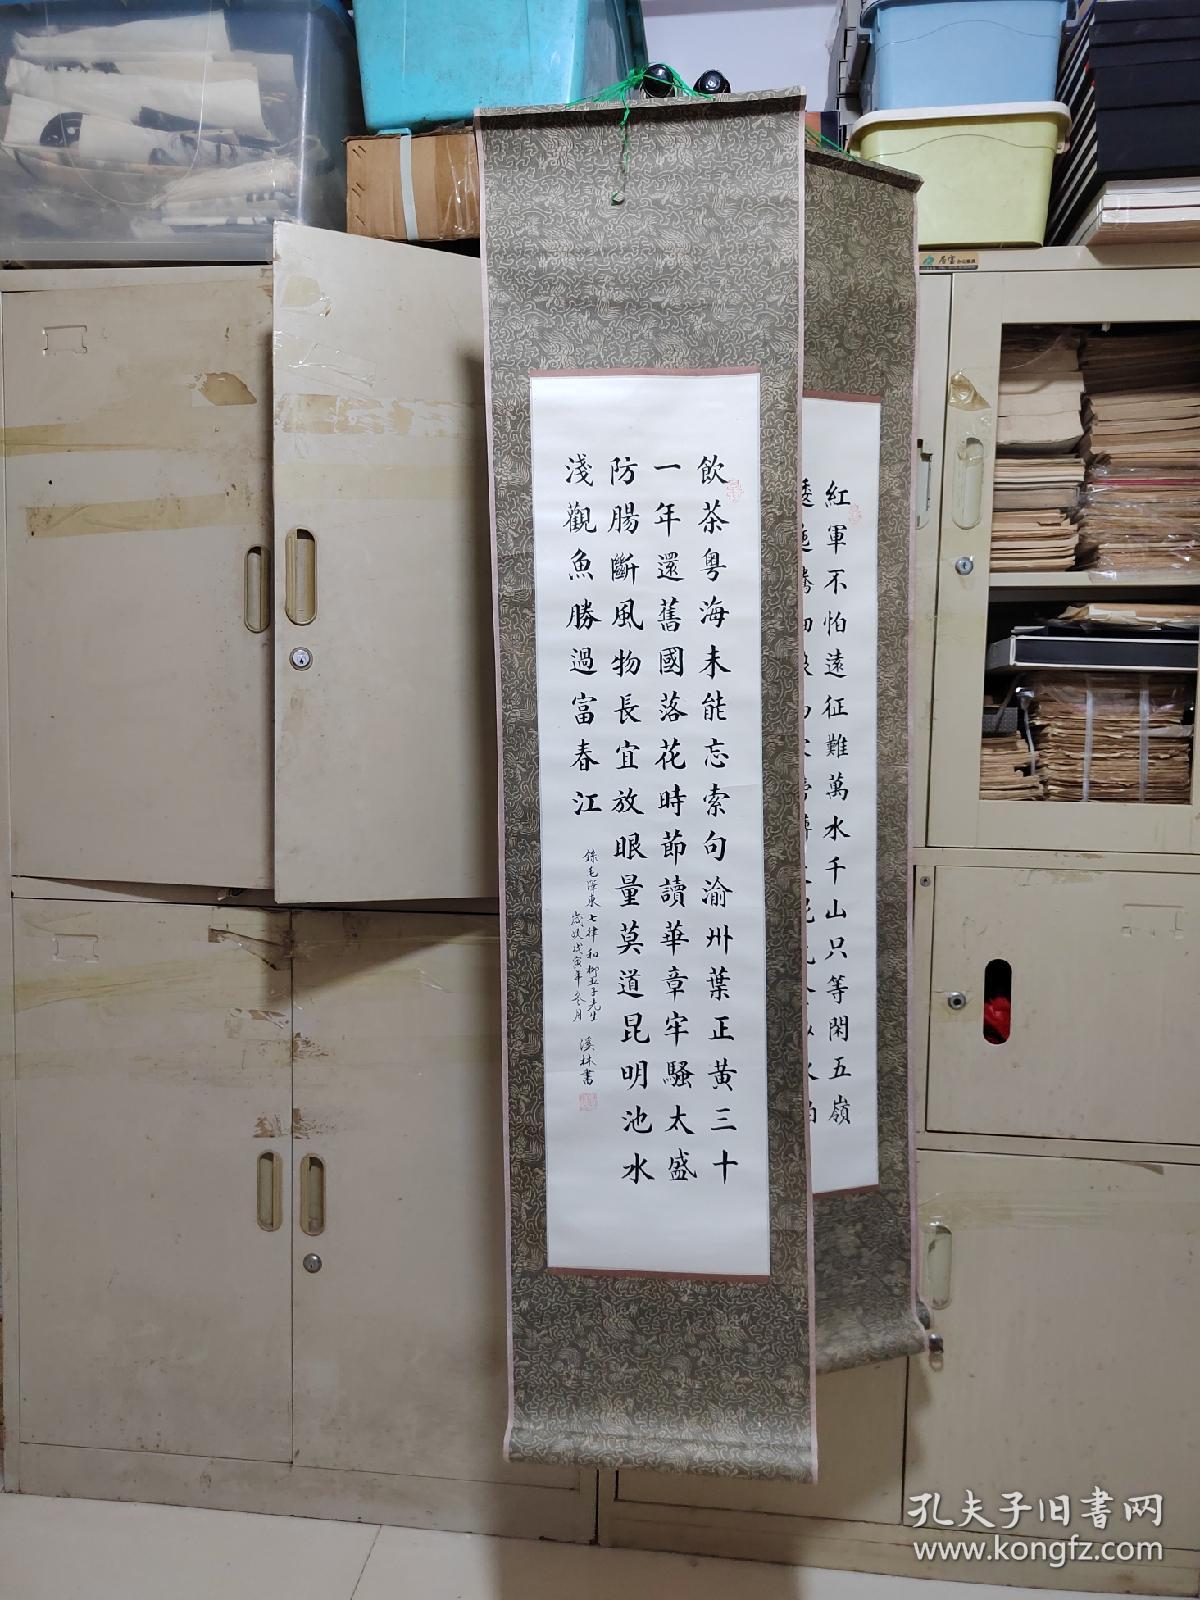 飲茶粵海未能忘索句渝州葉正黃三十
一年還舊國落花時節讀華章牢騷太盛
防腸斷風物長宜放眼量莫道昆明池水
淺觀魚勝過富春江
錄毛澤東七律和柳亞子先生
歲次戊寅年冬月
溪林書
紅軍不怕遠征難萬水千山只等閑五嶺
孔夫子旧书网
www.kongfz.com